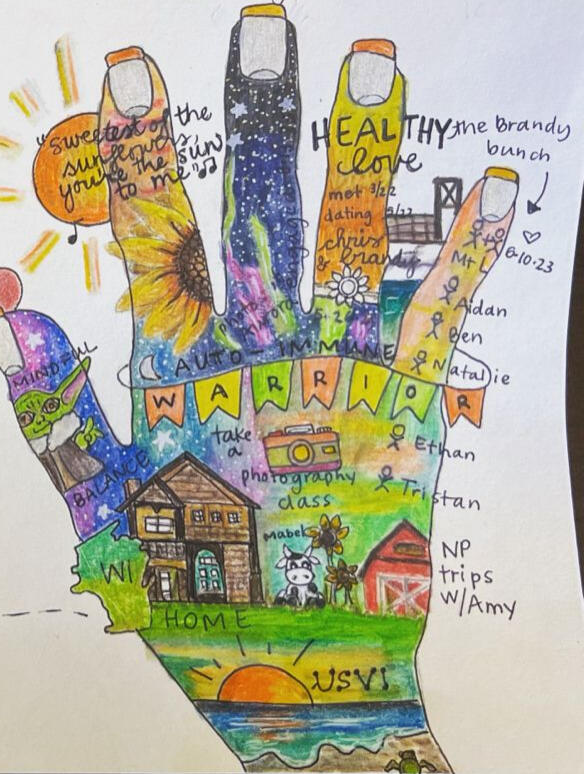 "sweetest of the
sunflowers,
you're the sun
to me"
HEALTHY
love
met 3/22
dating 5/22
chris
& brandy
the Brandy
bunch
6.10.23
M+L
Aidan
Ben
Natalie
Ethan
Tristan
MINDFULL
BALANCE
AUTO-IMMUNE
WARRIOR
take
a
photography
class
Mabel
WI
HOME
NP
trips
w/Amy
USVI